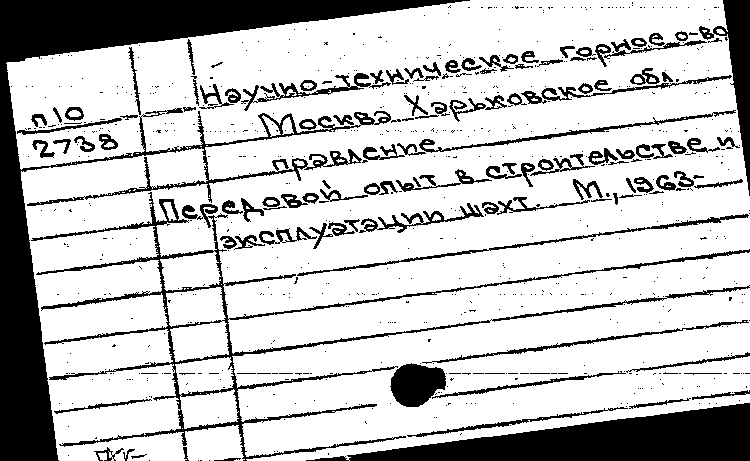 Научно-техническое горное о-во
п10
Москва Харьковское обл.
2738
правление.
Передовой опыт в строительстве и
эксплуатации шахт. М., 1963-